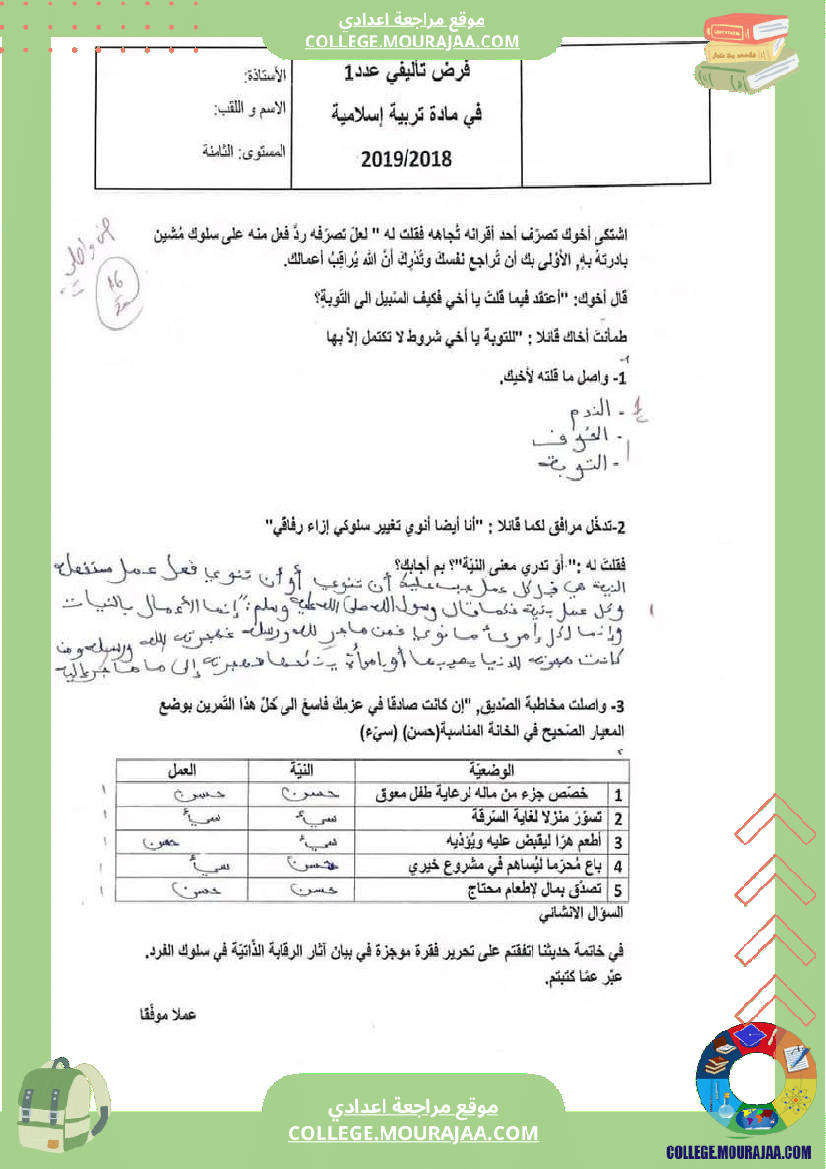 موقع مراجعة اعدادي
COLLEGE.MOURAJAA.COM
فرض تأليفي عدد1
في مادة تربية إسلامية
2019/2018
الأستاذة:
الاسم و اللقب:
المستوى: الثامنة
اشتكى أخوك تصرّف أحد أقرانه تُجاهه فقلت له " لعلّ تصرّفه ردُّ فعل منه على سلوك مُشين
بادرتهُ بهِ, الأوْلى بك أن تُراجع نفسكَ وتُدْرِكَ أنَّ الله يُراقِبُ أعمالك.
قال أخوك: "أعتقد فيما قلتَ يا أخي فكيف السّبيل الى التّوبةِ؟
طمأنتَ أخاك قائلا : "للتوبة يا أخي شروط لا تكتمل إلاّ بها
1- واصل ما قلته لأخيك.
- الندم
-
- التوبة
2-تدخّل مرافق لكما قائلا : "أنا أيضا أنوي تغيير سلوكي إزاء رفاقي"
فقلتَ له :" أوَ تدري معنى النيّة"؟ بم أجابك؟
النية هي قبل كل عمل يجب عليك أن تنوي أو أن تنوي فعل عمل
وكل عمل بنية فكما قال رسول الله صلى الله عليه وسلم: "إنما الأعمال بالنيات
وإنما لكل إمرئ ما نوى فمن هاجر لله ورسله فهجرته لله ورسله ومن
كانت هجرته للدنيا يصيبها أو امرأة ينكحها فهجرته إلى ما هاجر إليه
3- واصلت مخاطبة الصّديق, "إن كانت صادقا في عزمِكَ فاسعَ الى حَلّ هذا التّمرين بوضع
المعيار الصّحيح في الخانة المناسبة(حسن) (سيّء)
الوضعيّة النيّة العمل
1 خصّص جزء من ماله لرعاية طفل معوق حسن حسن
2 تسوّرَ منزلا لغاية السّرقة سيء سيء
3 أطعم هرّا ليقبضَ عليه ويُؤذيه سيء حسن
4 باع مُحرّما ليُساهم في مشروع خيري حسن سيء
5 تصدّق بمال لإطعام محتاج حسن حسن
السؤال الانشائي
في خاتمة حديثنا اتفقتم على تحرير فقرة موجزة في بيان آثار الرقابة الذّاتيّة في سلوك الفرد.
عبّر عمّا كتبتم.
عملا موفّقا
موقع مراجعة اعدادي
COLLEGE.MOURAJAA.COM
COLLEGE.MOURAJAA.COM